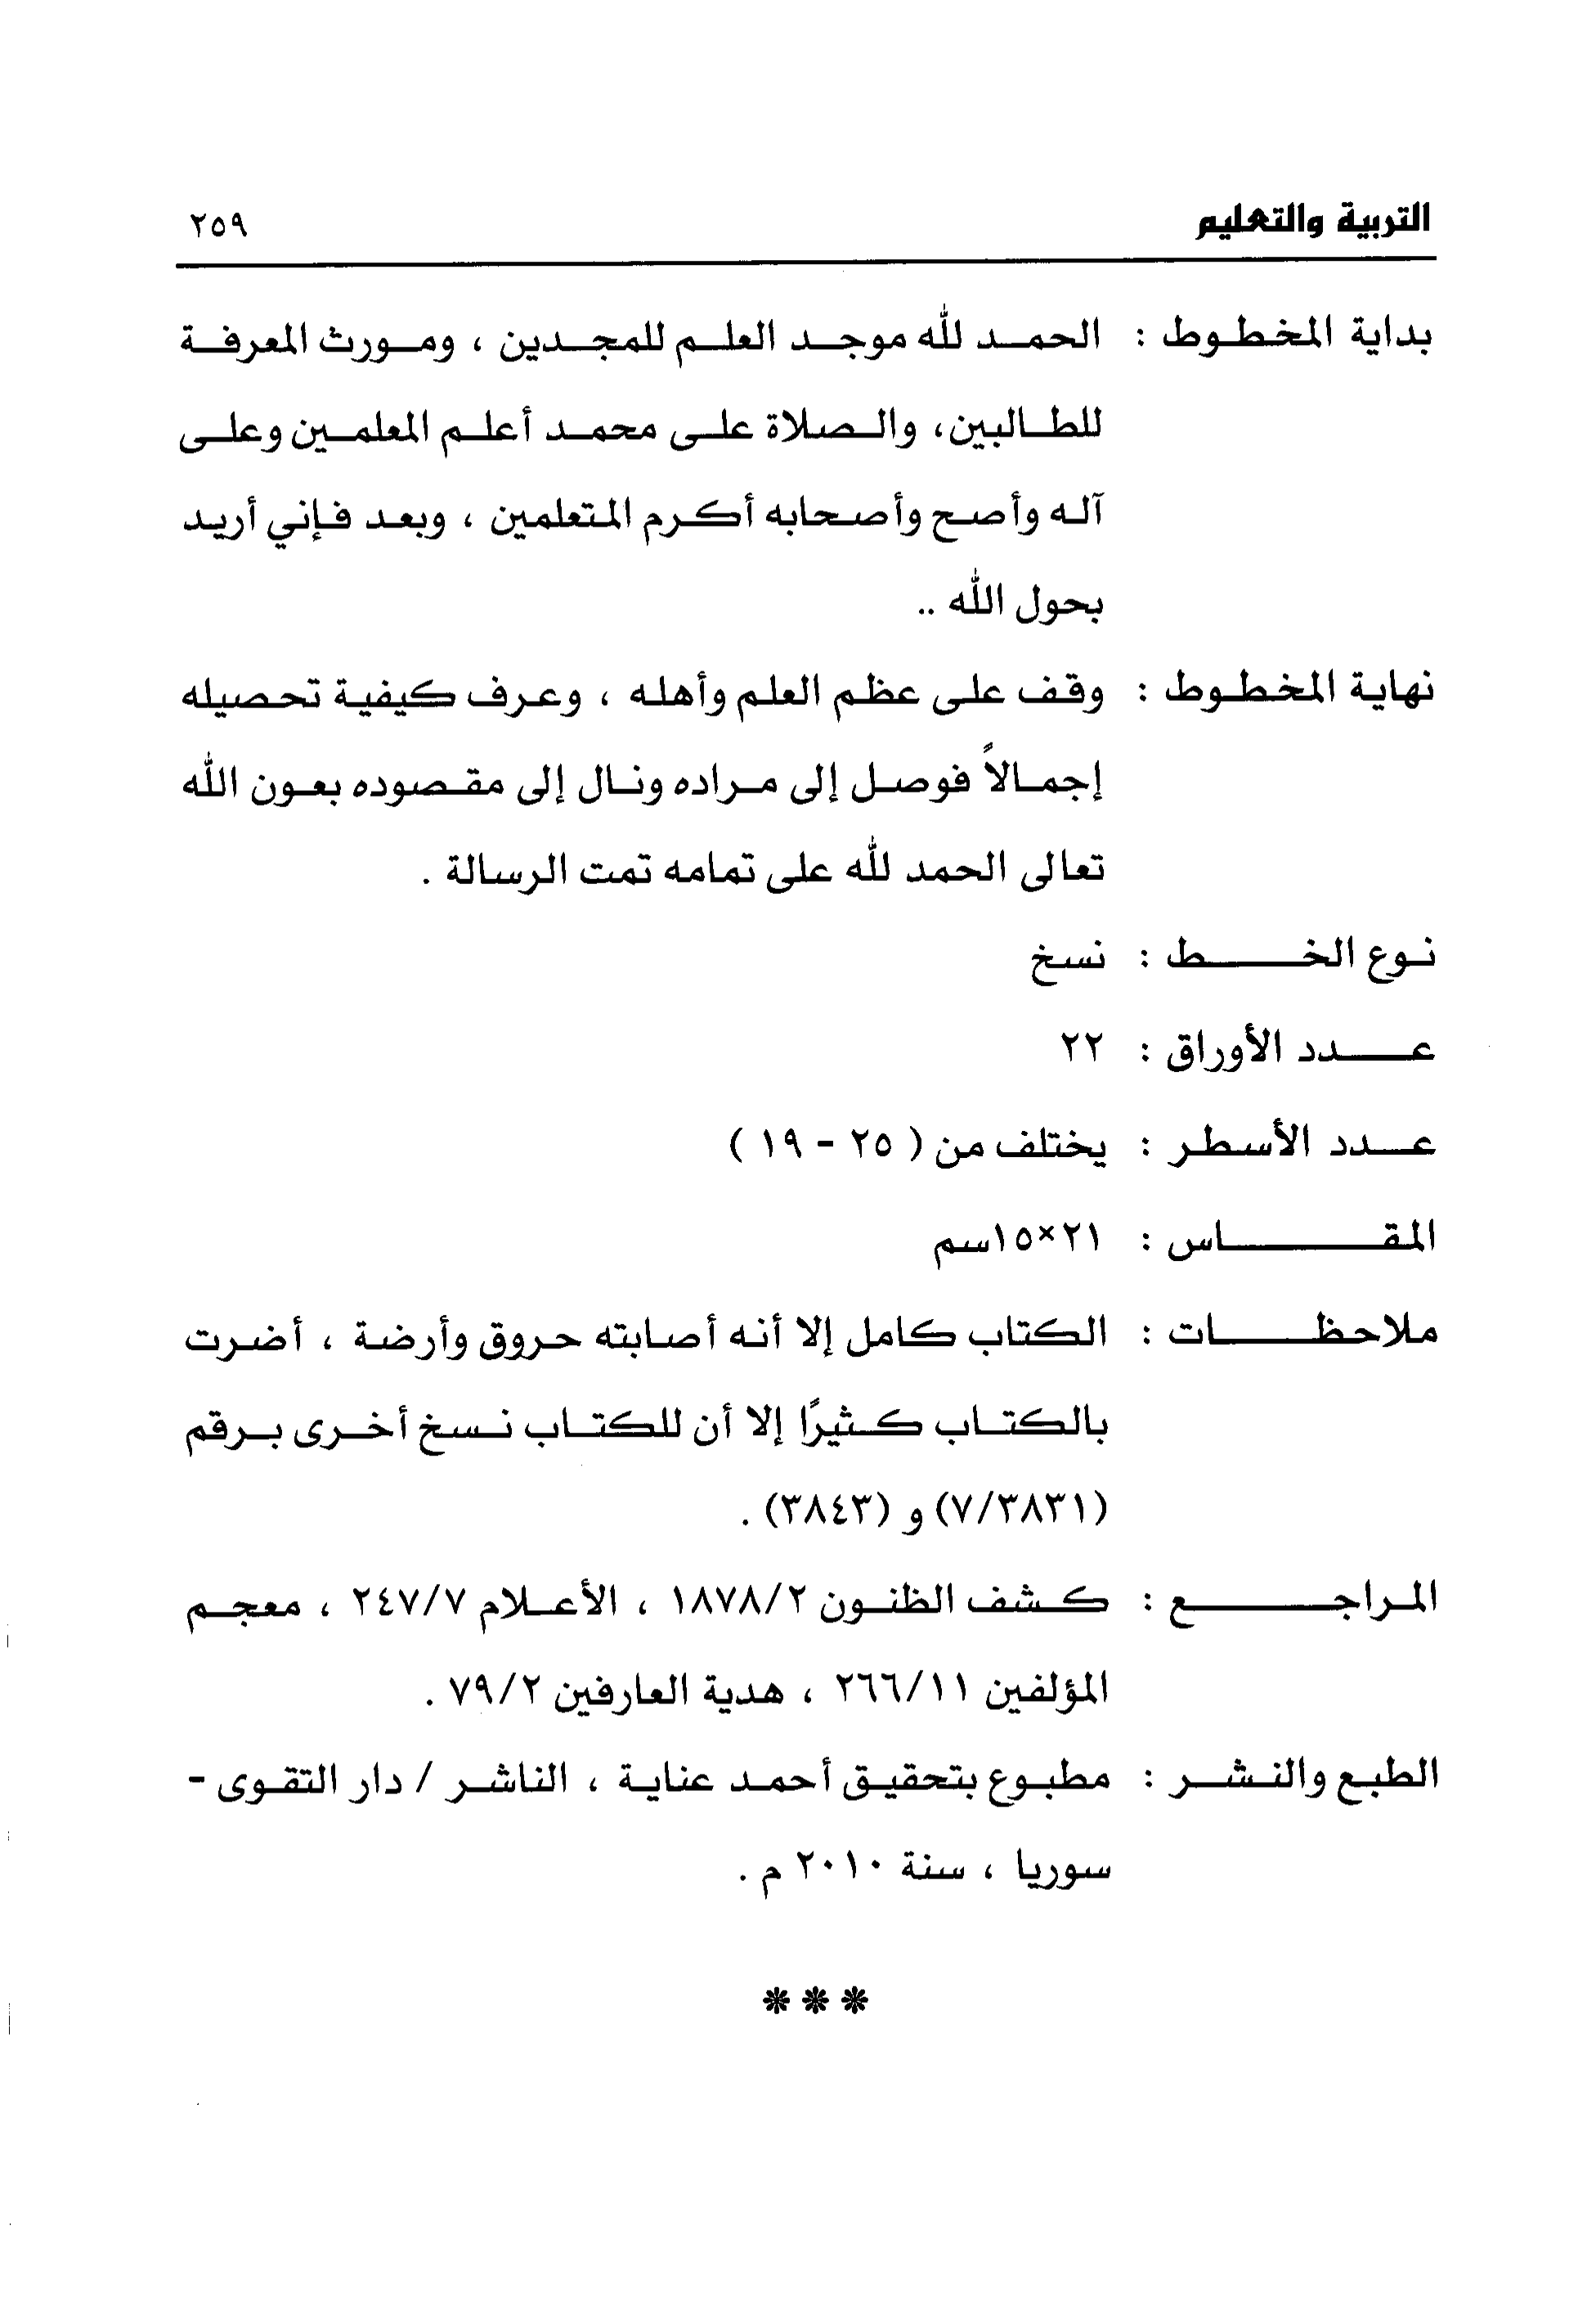 التربية والتعليم ٢٥٩
بداية المخطوط : الحمد لله موجد العلم للمجدين ، ومورث المعرفة
للطالبين، والصلاة على محمد أعلم المعلمين وعلى
آله وأصح وأصحابه أكرم المتعلمين ، وبعد فإني أريد
بحول الله ..
نهاية المخطوط : وقف على عظم العلم وأهله ، وعرف كيفية تحصيله
إجمالاً فوصل إلى مراده ونال إلى مقصوده بعون الله
تعالى الحمد لله على تمامه تمت الرسالة .
نوع الخط : نسخ
عدد الأوراق : ٢٢
عدد الأسطر : يختلف من ( ٢٥ - ١٩ )
المقاس : ٢١×١٥سم
ملاحظات : الكتاب كامل إلا أنه أصابته حروق وأرضة ، أضرت
بالكتاب كثيرًا إلا أن للكتاب نسخ أخرى برقم
(٧/٣٨٣١) و (٣٨٤٣) .
المراجع : كشف الظنون ١٨٧٨/٢ ، الأعلام ٢٤٧/٧ ، معجم
المؤلفين ٢٦٦/١١ ، هدية العارفين ٧٩/٢ .
الطبع والنشر : مطبوع بتحقيق أحمد عناية ، الناشر / دار التقوى -
سوريا ، سنة ٢٠١٠ م .
***